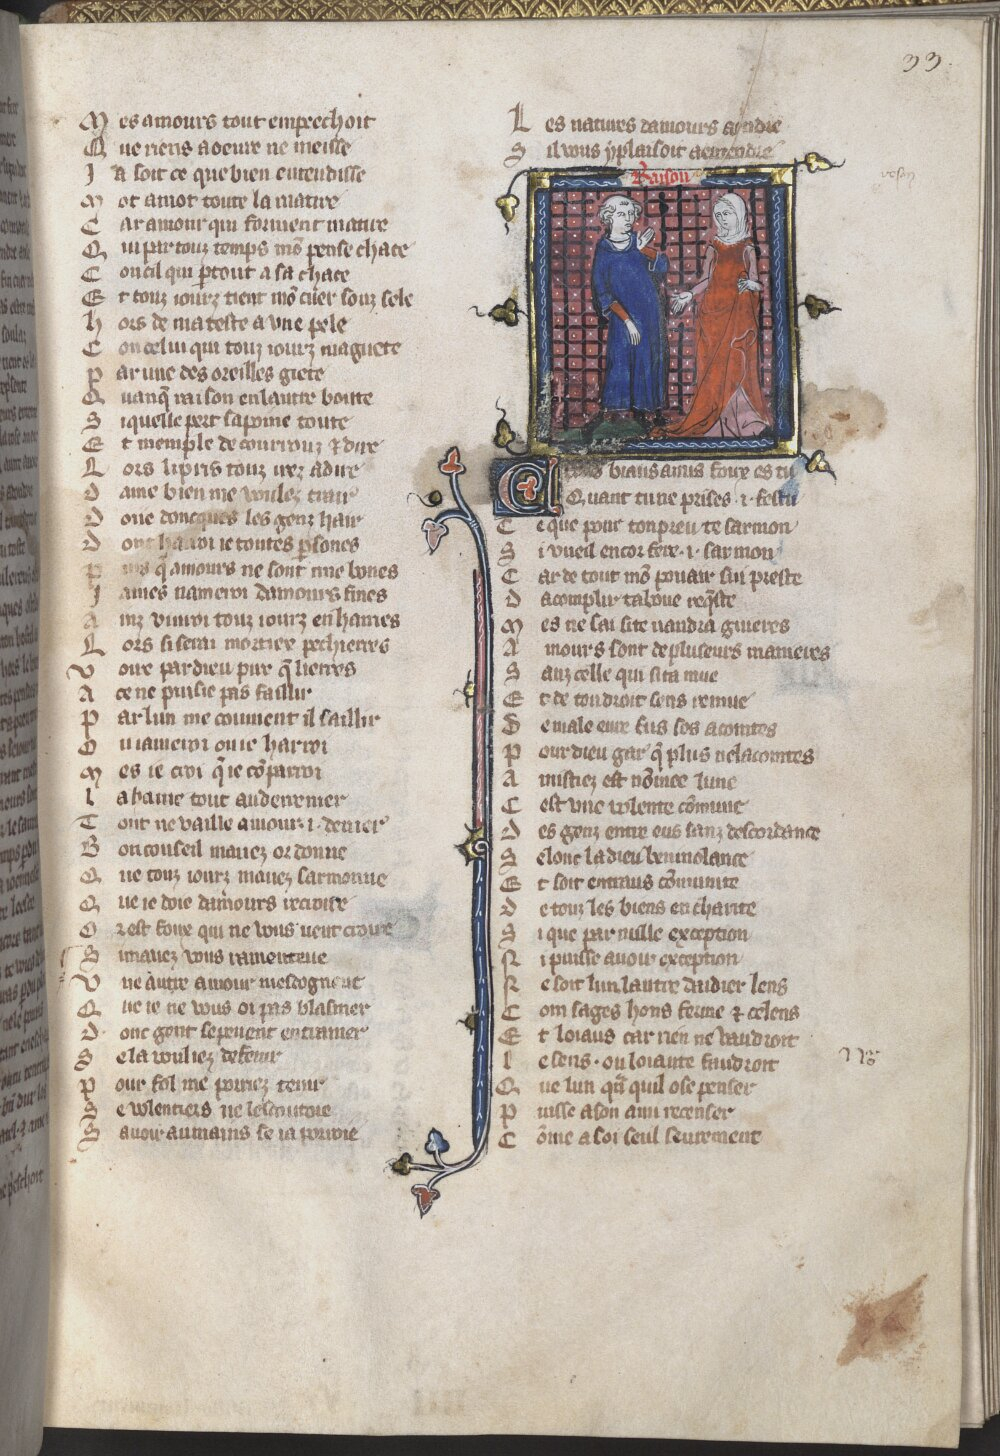 33
M es amours tout empeechoit
Q ue riens a oeure ne meisse
J a soit ce que bien entendisse
M ot a mot toute la matire
C ar amour qui forment matire
Q ui par touz temps mō pense chace
C on cil qui ꝑtout a sa chace
E t touz iourz tient mō cuer souz sele
h ors de ma teste a vne pele
C on celui qui touz iourz magaete
P ar une des oreilles giete
Q uanq̄ raison en lautre boute
S i quelle pert sa poine toute
E t memple de courrouz ⁊ dire
L ors li pris touz irez a dire
D ame bien me voulez trair
D oie doncques les genz hair
D ont harroi ie toutes ꝑsones
P uis q̄ amours ne sont mie bones
J ames namerai damours fines
A inz viurai touz iourz en haines
L ors si serai mortiex pechierres
V oire par dieu pire q̄ lierres
A ce ne puis ie pas faillir
P ar lun me couuient il saillir
O u iamerai ou ie harroi
M es ie croi q̄ ie cōparroi
L a haine tout au derrenier
T out ne vaille amour ·i· denier
B on conseil mauez or donne
Q ue touz iourz mauez sarmonne
Q ue ie doie damours recroire
O r est fox qui ne vous veut croire
S i mauez vous ramenteue
V ne autre amour mescogneut
Q ue ie ne vous oi pas blasmer
D ont gent se peuent entramer
S e la vouliez defenir
P our fol me porriez tenir
S e volentiers ne lescoutoie
S auoir au mains se ia porroie
L es natures damours aprandre
S il vous y plaisoit a entendre
Raison
C ertes biaus amis fox es tu
Q uant tu ne prises ·i· festu
C e que pour ton preu te sarmon
S i vueil encor fere ·i· sarmon
C ar de tout mō pouair sui preste
D acomplir ta bone req̄ste
M es ne sai si te vaudra guieres
A mours sont de pluseurs manieres
S anz celle qui si ta mue
E t de ton droit sens remue
D e male eure fus ses acointes
P our dieu gar q̄ plus ne lacointes
A mistiez est nōmee lune
C est vne volente cōmune
D es genz entre eus sanz descordance
S elonc la dieu beniuolance
E t soit entraus cōmunite
D e touz les biens en charite
S i que par nulle exception
N i puisse auoir exception
N e soit lun lautre daidier lens
C om sages hons ferme ⁊ celens
E t loiaus car rien ne vaudroit
L e sens · ou loiaute faudroit
Q ue lun qā quil ose penser
P uisse a son ami recenser
C ōme a soi seul seurement